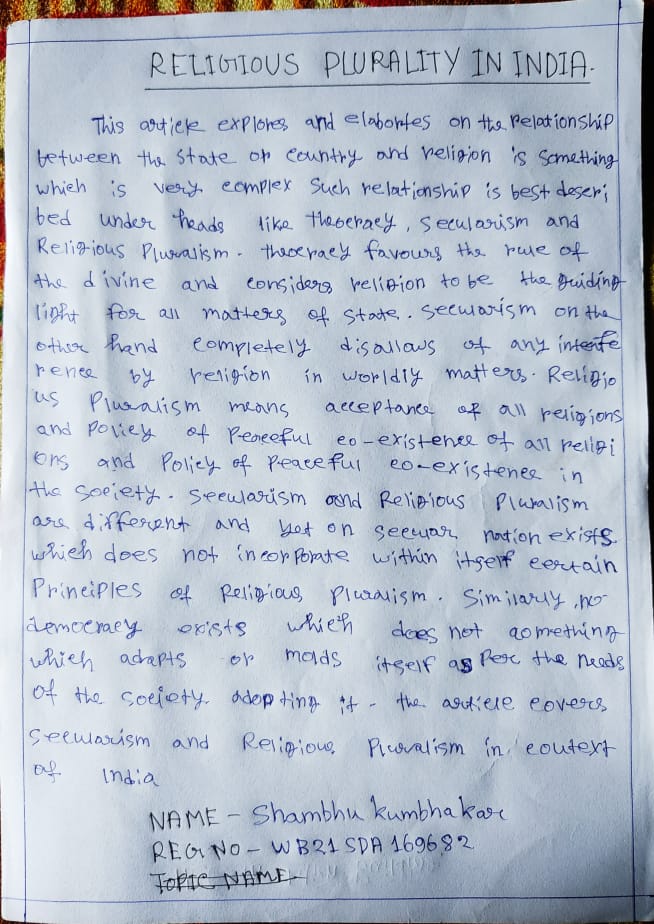 RELIGIOUS PLURALITY IN INDIA.
This article explores and elabortes on the relationship
between the state or country and religion is something
which is very complex Such relationship is best descri
bed under heads like theocracy, secularism and
Religious Pluralism. theocracy favours the rule of
the divine and considers religion to be the guiding
light for all matters of state. secularism on the
other hand completely disallows of any interfe
rence by religion in worldly matters. Religio
us Pluralism means acceptance of all religions
and policy of Peaceful co-existence of all religi
ons and Policy of Peaceful co-existence in
the society. Secularism and Religious Pluralism
are different and yet on secular nation exists.
which does not incorporate within itself certain
Principles of Religious Pluralism. Similarly, no
democracy exists which does not something
which adapts or molds itself as Per the needs
of the society adopting it. the article covers
Secularism and Religious Pluralism in context
of India
NAME - Shambhu kumbhakar
REG NO - WB21 SDA 169682
TOPIC NAME